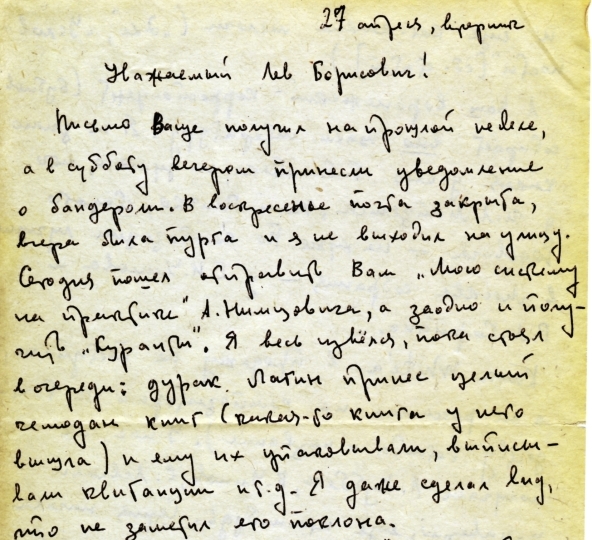 27 апреля, вторник
Уважаемый Лев Борисович!
Письмо Ваше получил на прошлой неделе,
а в субботу вечером принесли уведомление
о бандероли. В воскресенье почта закрыта,
вчера была пурга и я не выходил на улицу.
Сегодня пошел отправить Вам „Мою систему
на практике" А. Нимцовича, а заодно и полу-
чить „Куранты". Я весь извёлся, пока стоял
в очереди: дурак Лагин принес целый
чемодан книг (какая-то книга у него
вышла) и ему их упаковывали, выписы-
вали квитанции и т.д. Я даже сделал вид,
что не заметил его поклона.